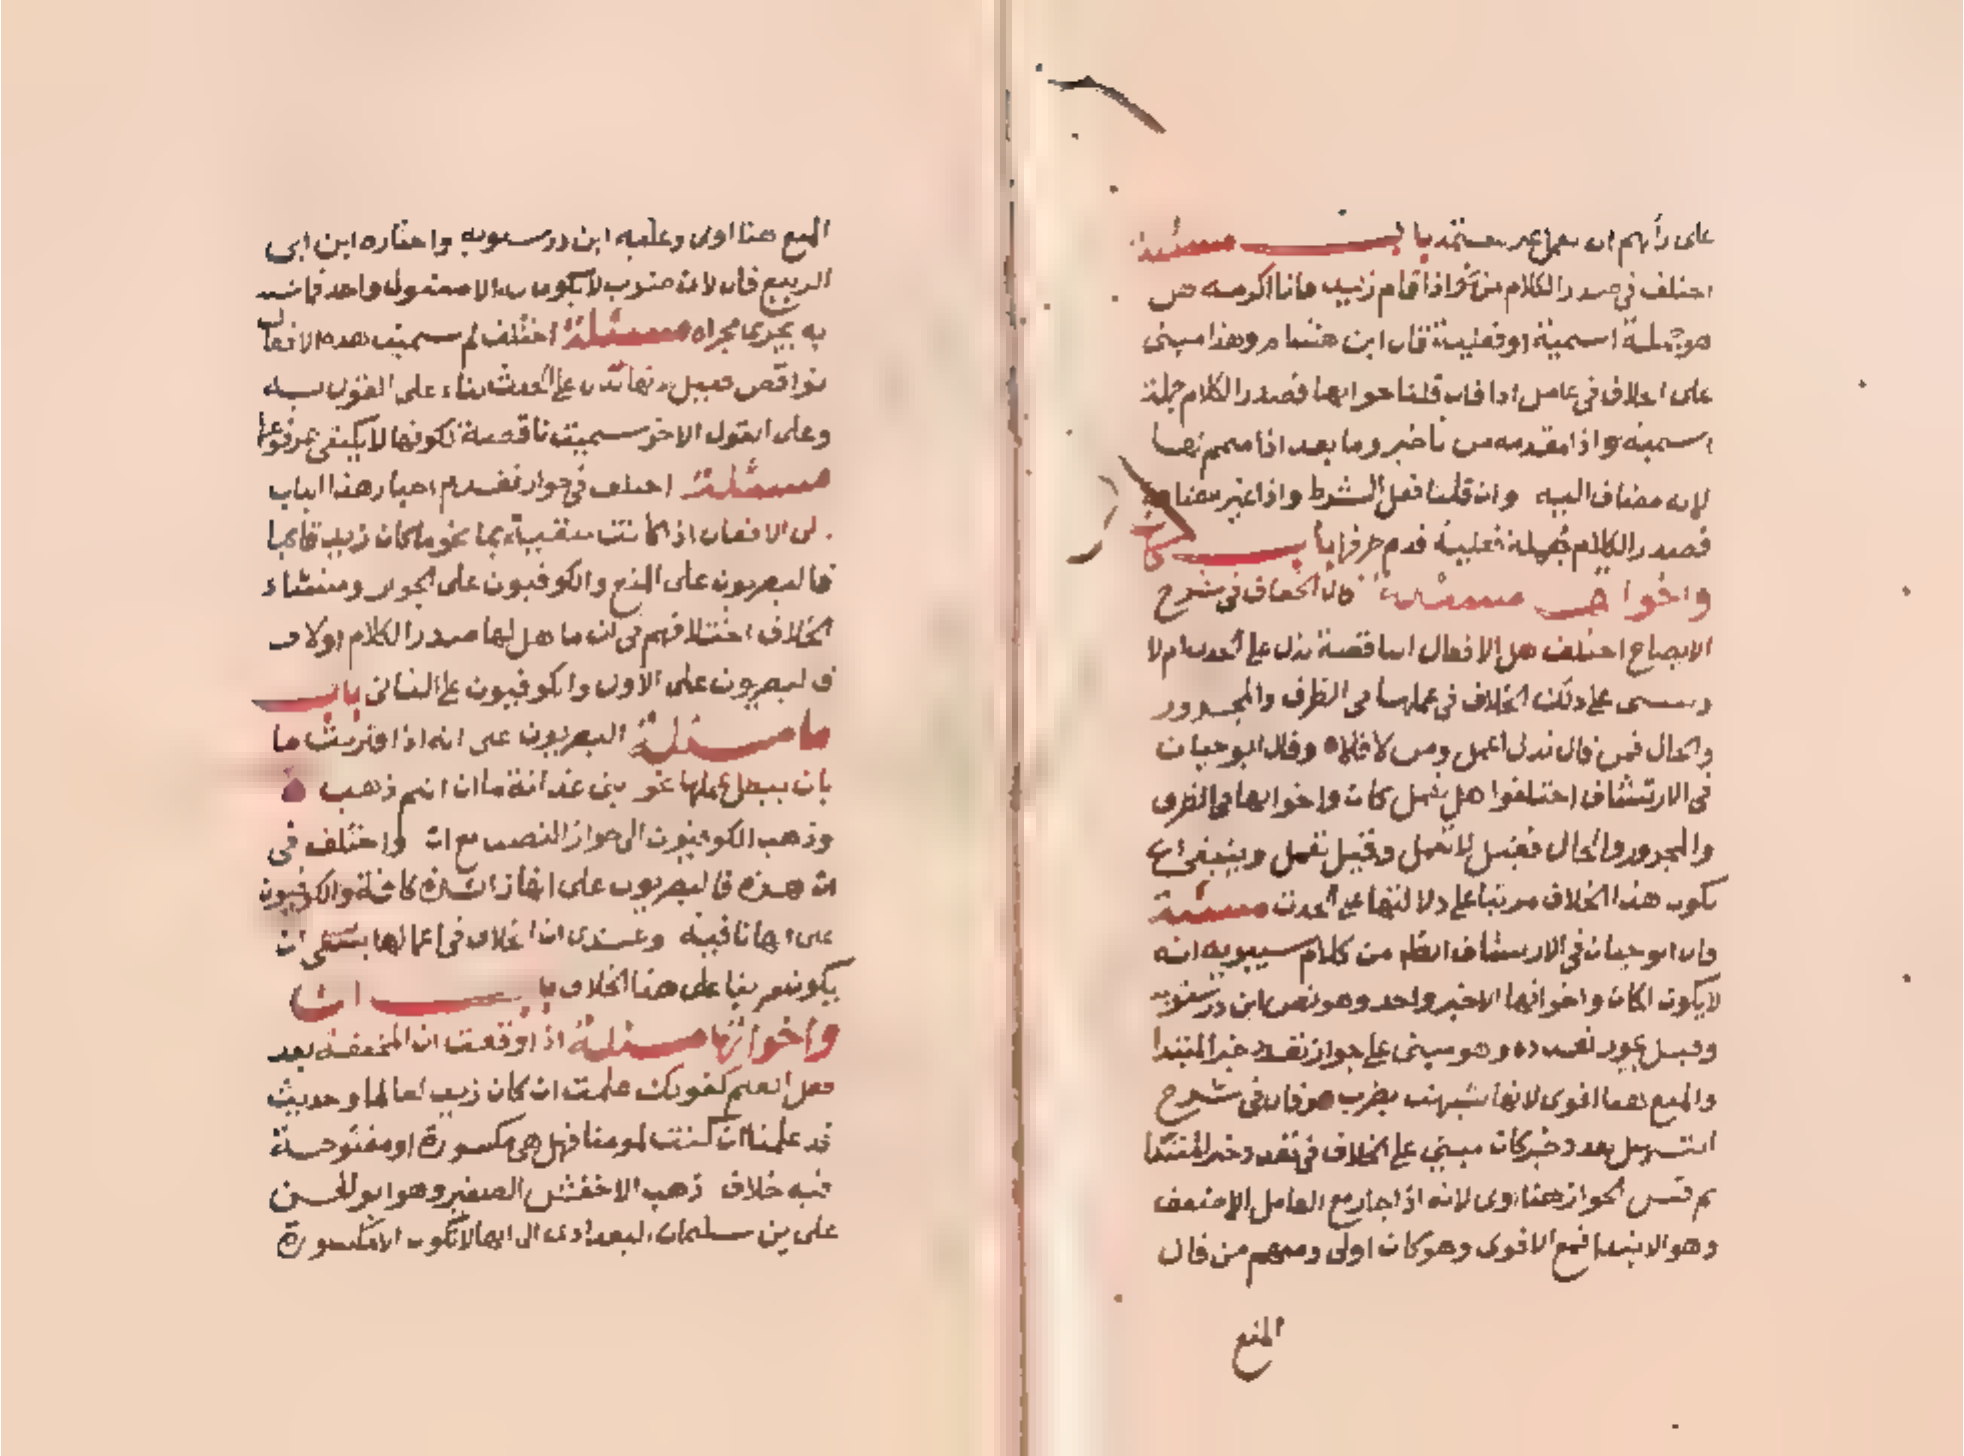 على رأيهم ان يعمل غير معتمد باب مسئلة
اختلف في صدر الكلام من نحو اذا قام زيد فانا اكرمه هل
هو جملة اسمية او فعلية قال ابن هشام وهذا مبنى
على الخلاف في عامل اذا فان قلنا جوابها فصدر الكلام جملة
اسمية واذا مقدمه من تأخير وما بعد اذا متمم لها
لانه مضاف اليه وان قلنا فعل الشرط واذا غير مضافة
فصدر الكلام جملة فعلية قدم ظرفها باب كان
واخواتها مسئلة قال الخفاف في شرح
الايضاح اختلف هل الافعال الناقصة تدل على الحدث ام لا
وينبني على ذلك الخلاف في عملها في الظرف والمجرور
والحال فمن قال تدل اعمل ومن لا فلا وقال ابو حيان
في الارتشاف اختلفوا هل تعمل كان واخواتها في الظرف
والمجرور والحال فقيل لا تعمل وقيل تعمل وينبغي ان
يكون هذا الخلاف مرتبا على دلالتها على الحدث مسئلة
قال ابو حيان في الارتشاف الظاهر من كلام سيبويه انه
لا يكون لكان واخواتها الا خبر واحد وهو نص ابن درستويه
وقيل يجوز تعدده وهو مبنى على جواز تعدد خبر المبتدا
والمنع هنا اقوى لانها شبهت بضرب قال في شرح
التسهيل تعدد خبر كان مبني على الخلاف في تعدد خبر المبتدا
ثم قيل الجواز هنا اولى لانه اذا جاز مع العامل الاضعف
وهو الابتدا فمع الاقوى وهو كان اولى ومنهم من قال
المنع
المنع هنا اولى وعليه ابن درستويه واختاره ابن ابى
الربيع قال لان ضرب لا يكون له الا مفعول واحد فما شبه
به يجرى مجراه مسئلة اختلف لم سميت هذه الافعال
نواقص فقيل لانها لا تدل على الحدث بناء على القول به
وعلى القول الاخر سميت ناقصة لكونها لا تكتفى بمرفوعها
مسئلة اختلف في جواز تقديم اخبار هذا الباب
على الافعال اذا كانت منفية بما نحو ما كان زيد قائما
فالبصريون على المنع والكوفيون على الجواز ومنشاء
الخلاف اختلافهم في ان ما هل لها صدر الكلام اولا
فالبصريون على الاول والكوفيون على الثاني باب
ما مسئلة البصريون على انه اذا اقترنت ما
بان يبطل عملها نحو بنى غدانة ما ان انتم ذهب
وذهب الكوفيون الى جواز النصب مع ان واختلف في
ان هذه فالبصريون على انها زائدة كافة والكوفيون
على انها نافية وعندى ان الخلاف في اعمالها ينبغى ان
يكون مرتبا على هذا الخلاف باب ان
واخواتها مسئلة اذا وقعت ان المخففة بعد
فعل العلم كقولك علمت ان كان زيد لعالما وحديث
قد علمنا ان كنت لمومنا فهل هي مكسورة او مفتوحة
فيه خلاف ذهب الاخفش الصغير وهو ابو الحسن
على بن سليمان البغدادى الى انها لا تكون الا مكسورة